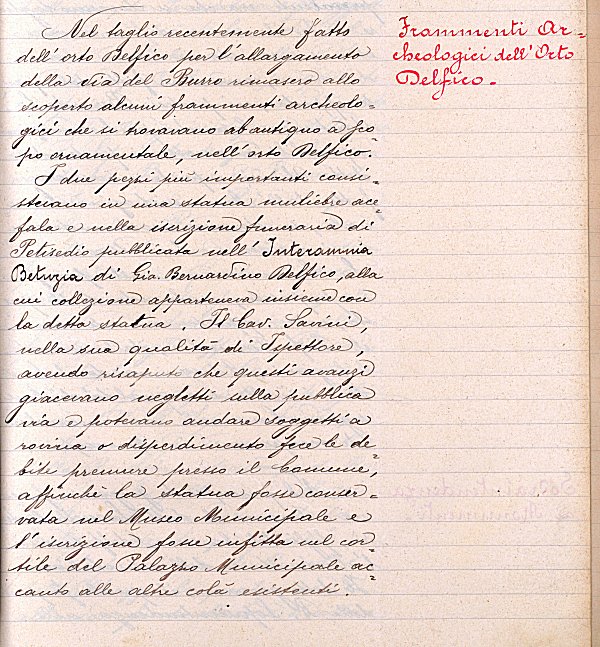 Nel taglio recentemente fatto
dell'orto Delfico per l'allargamento
della via del Burro rimasero allo
scoperto alcuni frammenti archeolo-
gici che si trovavano ab antiquo a sco-
po ornamentale, nell'orto Delfico.
I due pezzi più importanti consi-
stevano in una statua muliebre ace-
fala e nella iscrizione funeraria di
Petisedio pubblicata nell'Interamnia
Betruzia di Gia. Bernardino Delfico, alla
cui collezione apparteneva insieme con
la detta statua. Il Cav. Savini,
nella sua qualità di Ispettore,
avendo risaputo che questi avanzi
giacevano negletti sulla pubblica
via e potevano andare soggetti a
rovina o disperdimento fece le de-
bite premure presso il Comune,
affinchè la statua fosse conser-
vata nel Museo Municipale e
l'iscrizione fosse infitta nel cor-
tile del Palazzo Municipale ac-
canto alle altre colà esistenti.
Frammenti Ar-
cheologici dell'Orto
Delfico.